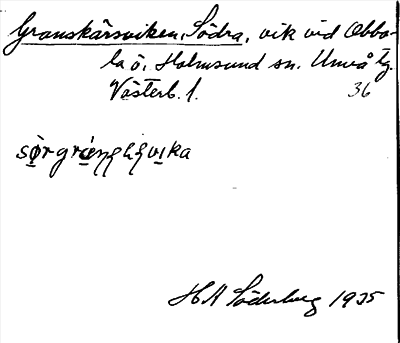 Granskärsviken, Södra, vik vid Obbo-
la ö, Holmsund sn. Umeå tg.
Västerb. l. 36
H Söderberg 1935